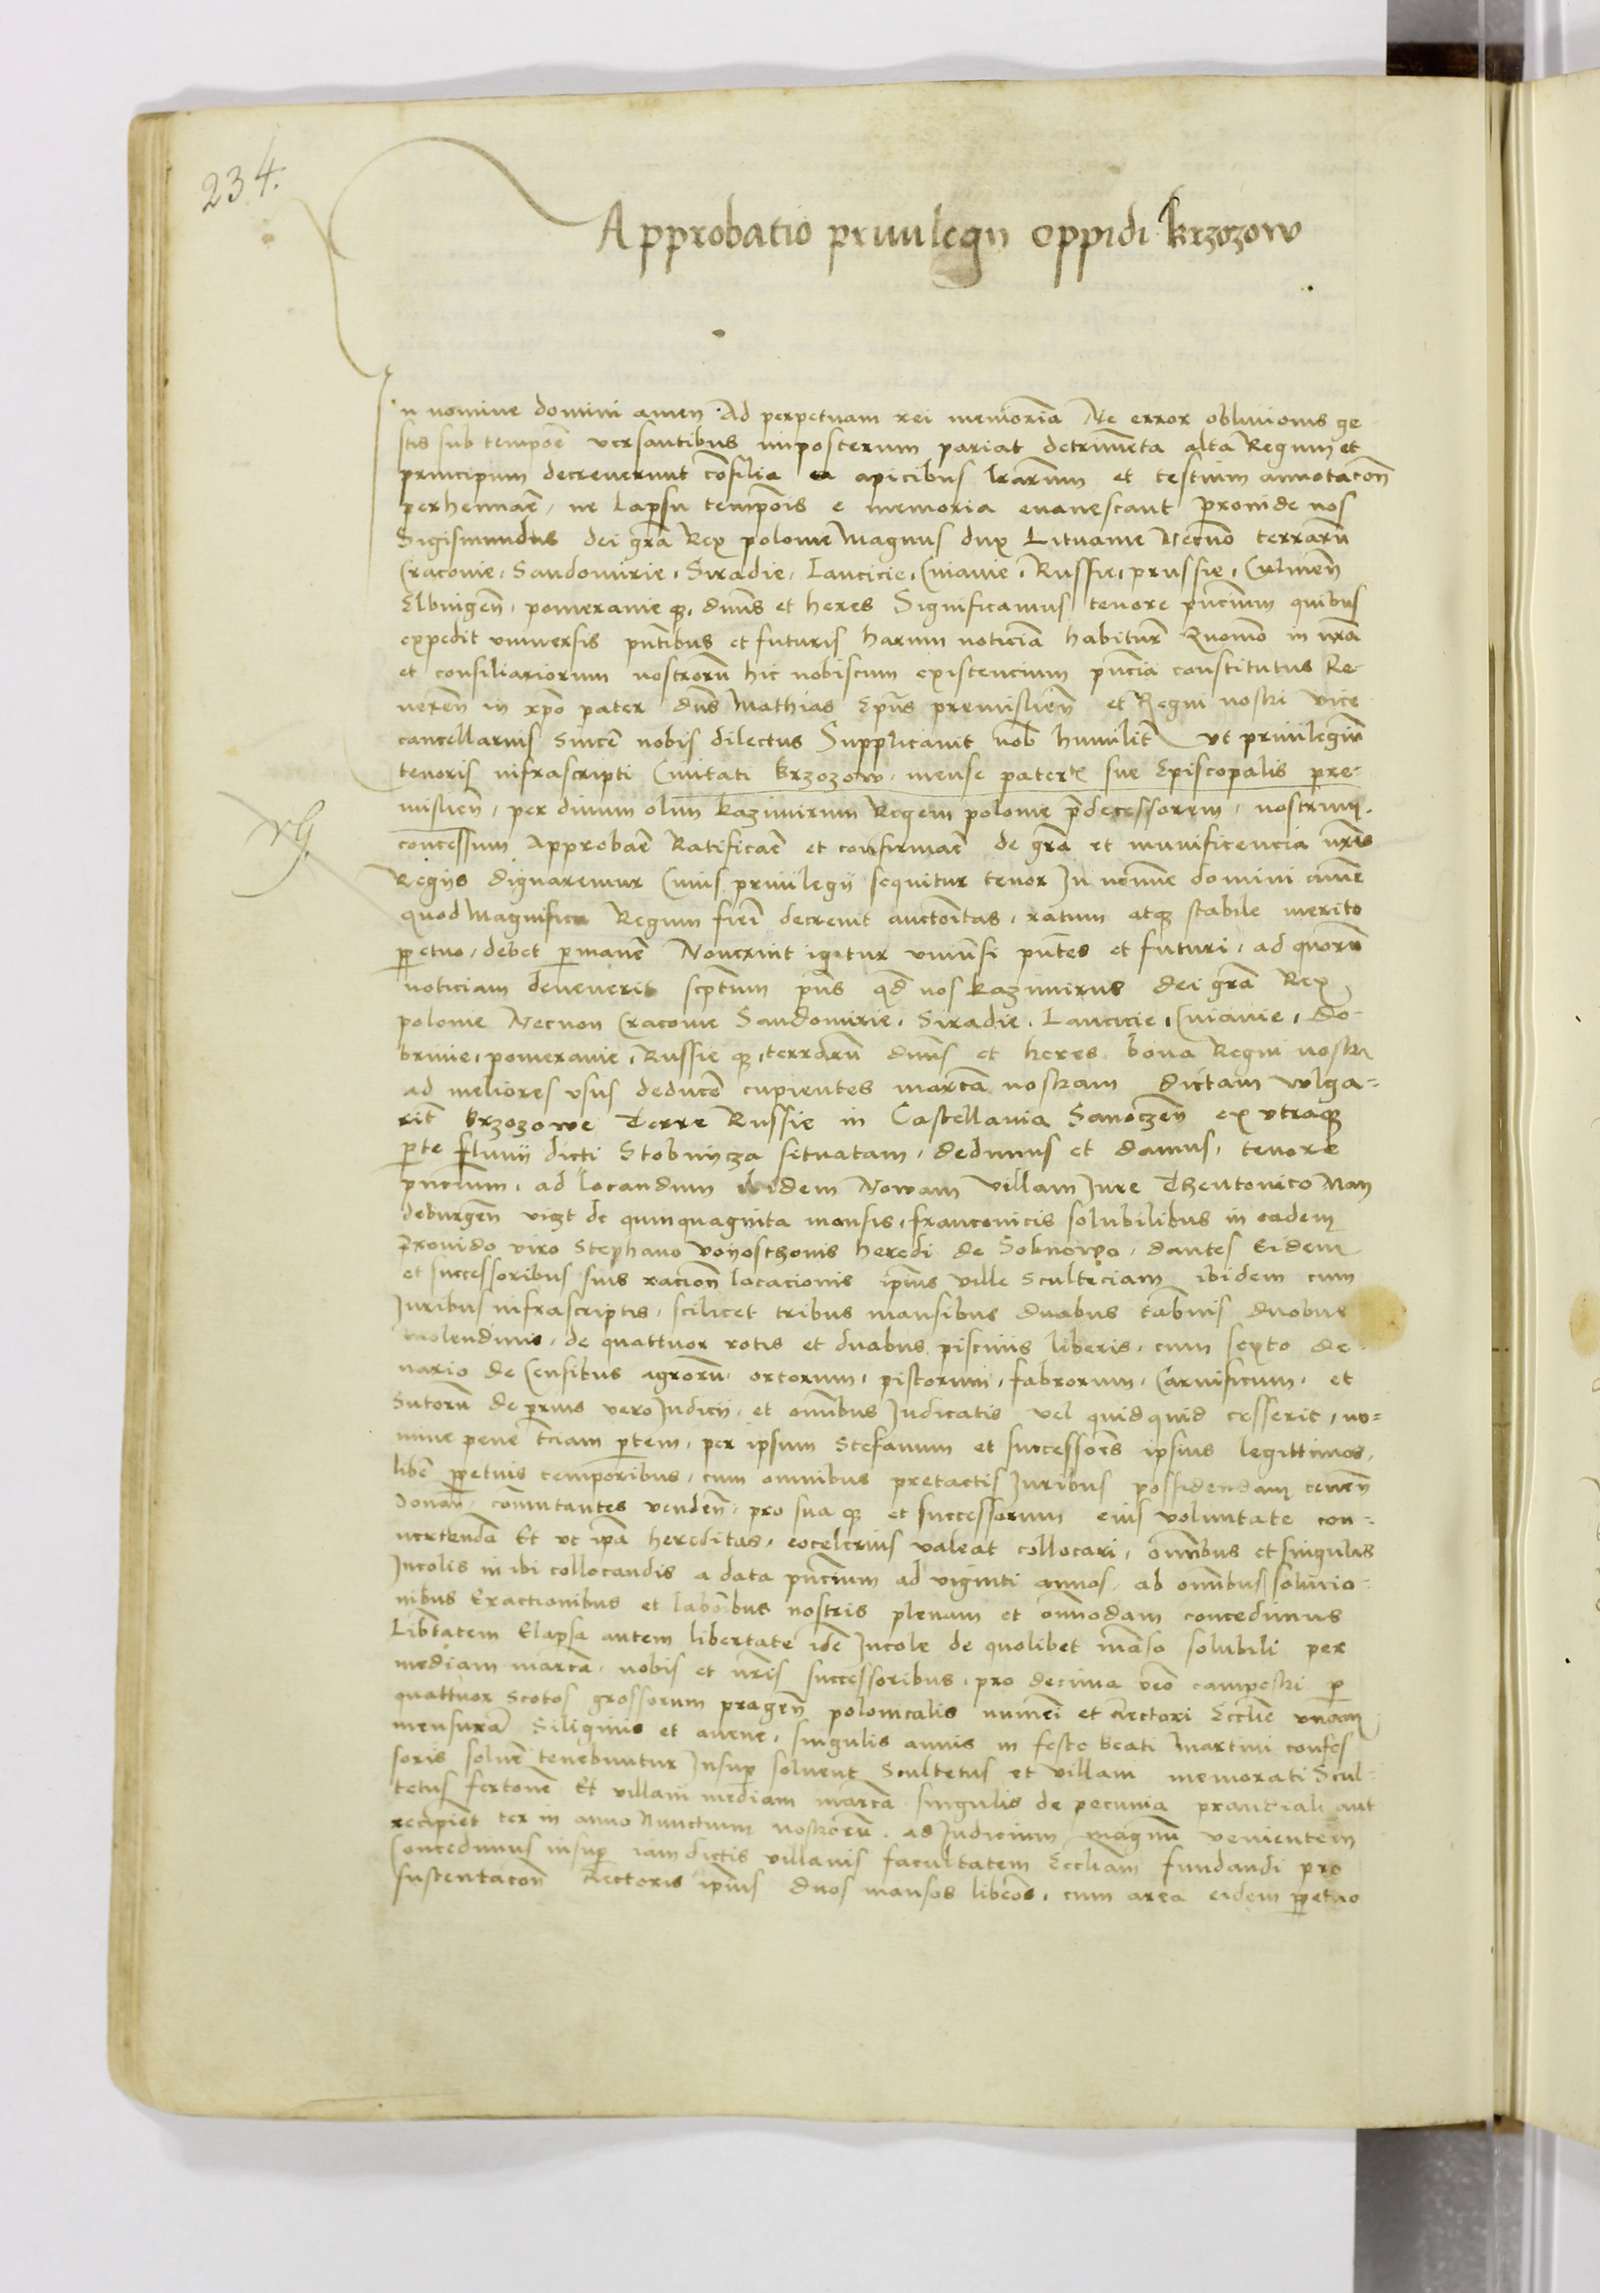 234.
Approbatio priuilegii oppidi Krzozow
In nomine domini amen Ad perpetuam rei memoriā Ne error obliuionis ge
stis sub tempoē versantibus imposterum pariat detrimēta alta Regum et
principum decreuerunt cōsilia ea apicibus lrārum et testium annotacōn
perhennaē, ne lapsu tempōis e memoria euanescant proinde nos
Sigismundus dei grā Rex polonie Magnus dux Lituanie Necnō terrarū
Cracouie, Sandomirie, Siradie, Lancicie, Cuiauie, Russie, prussie, Culmeñ
Elbingeñ, pomeranie qz, dnūs et heres Significamus tenore pñcium quibus
expedit vniuersis pñtibus et futuris harum noticiā habiturˉ Quomō in nrā
et consiliariorum nostrorū hic nobiscum existencium pñcia constitutus Re-
uereñ in xpō pater dñs Mathias Epūs premislieñ et Regni nostri vice
cancellarius sincē nobis dilectus Supplicauit nob humilit̄ vt priuilegiū
tenoris infrascripti Ciuitati krzozow, mense sue Episcopalis pre-
mislieñ, per diuum olim kazimirum Regem polonie p̄decessorem, nostrum.
concessum Approbaē Ratificaē et confirmaē de grā et munificencia nrīs
Regijs dignaremur Cuius priuilegij sequitur tenor In nomine domini amē
quod Magnifica Regum fieī decreuit auctoītas, ratum atqz stabile merito
ppetuo, debet pmanē Nouerint igitur vniūsi pñtes et futuri, ad quorū
noticiam deuenerit scp̄tum pñs qd nos kazimirus dei grā Rex
polonie Necnon Cracouie Sandomirie, Siradie, Lancicie, Cuiauie, Do-
brinie, pomeranie, Russie qz, terrarū dnūs et heres bona Regni nostri
ad meliores vsus deducē cupientes marcā nostram dictam vulga-
rit̄ krzozowe Terre Russie in Castellania Sanoczeñ ex vtraqz
pte fluuij dicti Stobnycza situatam, dedimus et damus, tenore
pñcium, ad locandum ibidem Nowam villam Jure Theutonico Man
deburgeñ vizt de quinquaginta mansis, franconicis solubilibus in eadem
Prouido viro Stephano voyosthonis heredi de Sobnowo, dantes Eidem
et successoribus suis racioñ locacionis ipīus ville Sculteciam ibidem cum
Juribus infrascriptis, scilicet tribus mansibus duabus tabn̄is duobus
molendinis, de quattuor rotis et duabus piscinis liberis, cum sexto de-
nario de Censibus agrorū, ortorum, pistorum, fabrorum, Carnificum, et
Sutorū de prius vero Judicij, et omibus Judicatis vel quidquid cesserit, no-
mine pene tciam ptem, per ipsum Stefanum et successoēs ipsius legittimos,
libē ppetuis temporibus, cum omnibus pretactis Juribus possidendam teneñ
donañ, cōmutantes vendeñ, pro sua qz et successorum eius voluntate con-
uertendā Et vt ipā hereditas, eocelerius valeat collocari, omībus et singulis
Incolis in ibi collocandis a data pñcium ad viginti annos, ab omībus solucio-
nibus Exactionibus et labōibus nostris plenam et omīodam concedimus
Libtatem Elapsa autem libertate idē Incole de quolibet māso solubili per
mediam marcā, nobis et nrīs successoribus, pro decima vēo campestri p
quattuor scotos grossorum prageñ polonicalis numēi et Rectori Ecclīe vnam
mensurā Siliginis et auene, singulis annis in festo beati Martini confes
soris soluē tenebuntur Insup soluent Scultetus et villani memorati Scul-
tetus fertonē Et villani mediam marcā singulis de pecunia prandiali aut
recipiēt ter in anno Nunctium nostrorū, ad Judicium magnū venientem
Concedimus insup iam dictis villanis facultatem Eccliam fundandi pro
sustentacoñ Rectoris ipīus duos mansos libeōs, cum area eidem ppetuo